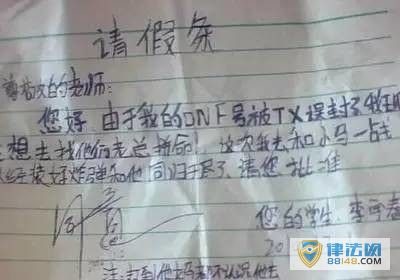 请假条
尊敬的老师:
您好,由于我的DNF号被TX误封了我现
想去找他们老总拼命!这次我去和小马一战
已经装好炸弹和他同归于尽了,请您批准
同意
您的学生:李
20
律法网
88148.com